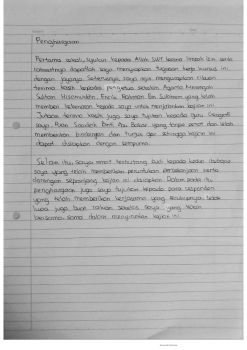 Penghargaan
Pertama sekali, syukur kepada Allah SWT kerana limpah izin serta
rahmatNya dapatlah saya menyiapkan tugasan kerja kursus ini
dengan jayanya. Seterusnya, saya ingin mengucapkan ribuan
terima kasih kepada pengetua sekolah Agama Menengah
Sultan Hisamuddin, Encik Rahman Bin Sulaiman yang telah
memberi kebenaran kepada saya untuk menjalankan kajian ini.
Jutaan terima kasih juga saya tujukan kepada guru Geografi
saya, Puan binti Abu Bakar yang tanpa penat dan lelah
memberikan bimbingan dan tunjuk ajar sehingga kajian ini
dapat disiapkan dengan sempurna.
Selain itu, saya amat terhutang budi kepada kedua ibubapa
saya yang telah memberikan peruntukan perbelanjaan serta
dorongan sepanjang kajian ini disiapkan. Dalam pada itu,
penghargaan juga saya tujukan kepada para responden
yang telah memberikan kerjasama yang secukupnya. Tidak
lupa juga buat rakan sekelas saya yang telah
bersama-sama dalam menjalankan kajian ini.